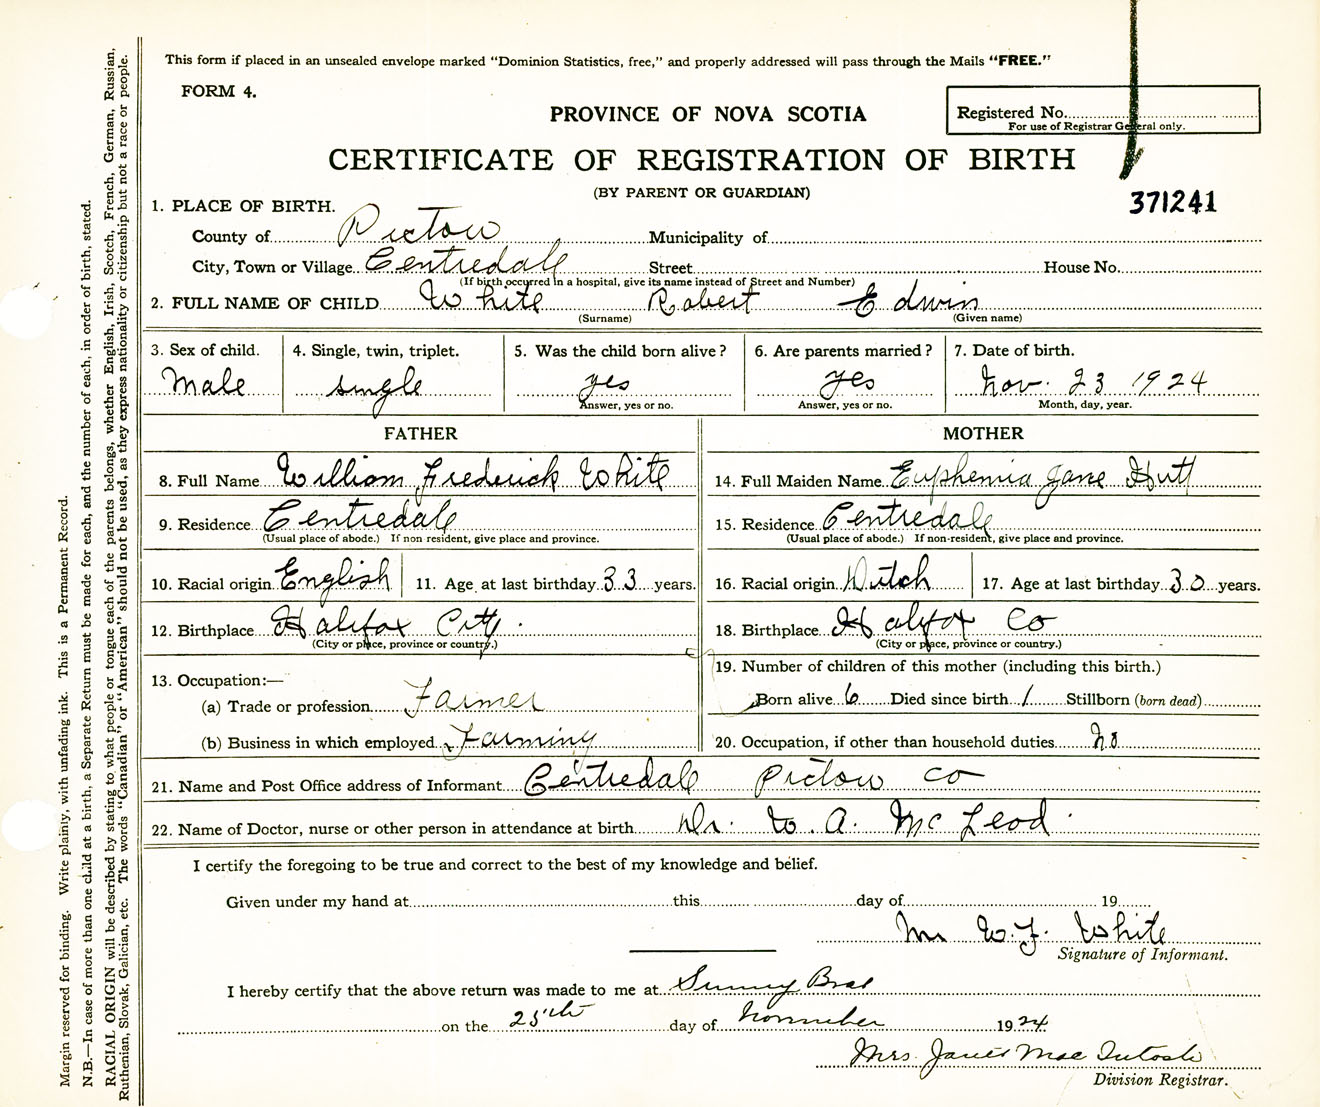 This form if placed in an unsealed envelope marked "Dominion Statistics, free," and properly addressed will pass through the Mails "FREE."
FORM 4.
PROVINCE OF NOVA SCOTIA
Registered No.
For use of Registrar General only.
CERTIFICATE OF REGISTRATION OF BIRTH
(BY PARENT OR GUARDIAN)
371241
1. PLACE OF BIRTH.
County of Pictou Municipality of
City, Town or Village Centredale Street House No.
(If birth occurred in a hospital, give its name instead of Street and Number)
2. FULL NAME OF CHILD White Robert Edwin
(Surname) (Given name)
3. Sex of child. 4. Single, twin, triplet. 5. Was the child born alive? 6. Are parents married? 7. Date of birth.
Male single yes yes Nov. 23 1924
Answer, yes or no. Answer, yes or no. Month, day, year.
FATHER MOTHER
8. Full Name William Frederick White 14. Full Maiden Name Euphemia Jane Hutt
9. Residence Centredale 15. Residence Centredale
(Usual place of abode.) If non resident, give place and province. (Usual place of abode.) If non-resident, give place and province.
10. Racial origin English 11. Age at last birthday 33 years. 16. Racial origin Dutch 17. Age at last birthday 30 years.
12. Birthplace Halifax City. 18. Birthplace Halifax Co
(City or place, province or country.) (City or place, province or country.)
13. Occupation:— 19. Number of children of this mother (including this birth.)
(a) Trade or profession Farmer Born alive 6 Died since birth 1 Stillborn (born dead)
(b) Business in which employed Farming 20. Occupation, if other than household duties no
21. Name and Post Office address of Informant Centredale Pictou Co
22. Name of Doctor, nurse or other person in attendance at birth Dr. W. A. McLeod.
I certify the foregoing to be true and correct to the best of my knowledge and belief.
Given under my hand at this day of 19
Mr W. F. White
Signature of Informant.
I hereby certify that the above return was made to me at Sunny Brae
on the 25th day of November 1924
Mrs. Janet MacIntosh
Division Registrar.
Margin reserved for binding. Write plainly, with unfading ink. This is a Permanent Record.
N.B.—In case of more than one child at a birth, a Separate Return must be made for each, and the number of each, in order of birth, stated.
RACIAL ORIGIN will be described by stating to what people or tongue each of the parents belongs, whether English, Irish, Scotch, French, German, Russian,
Ruthenian, Slovak, Galician, etc. The words "Canadian" or "American" should not be used, as they express nationality or citizenship but not a race or people.